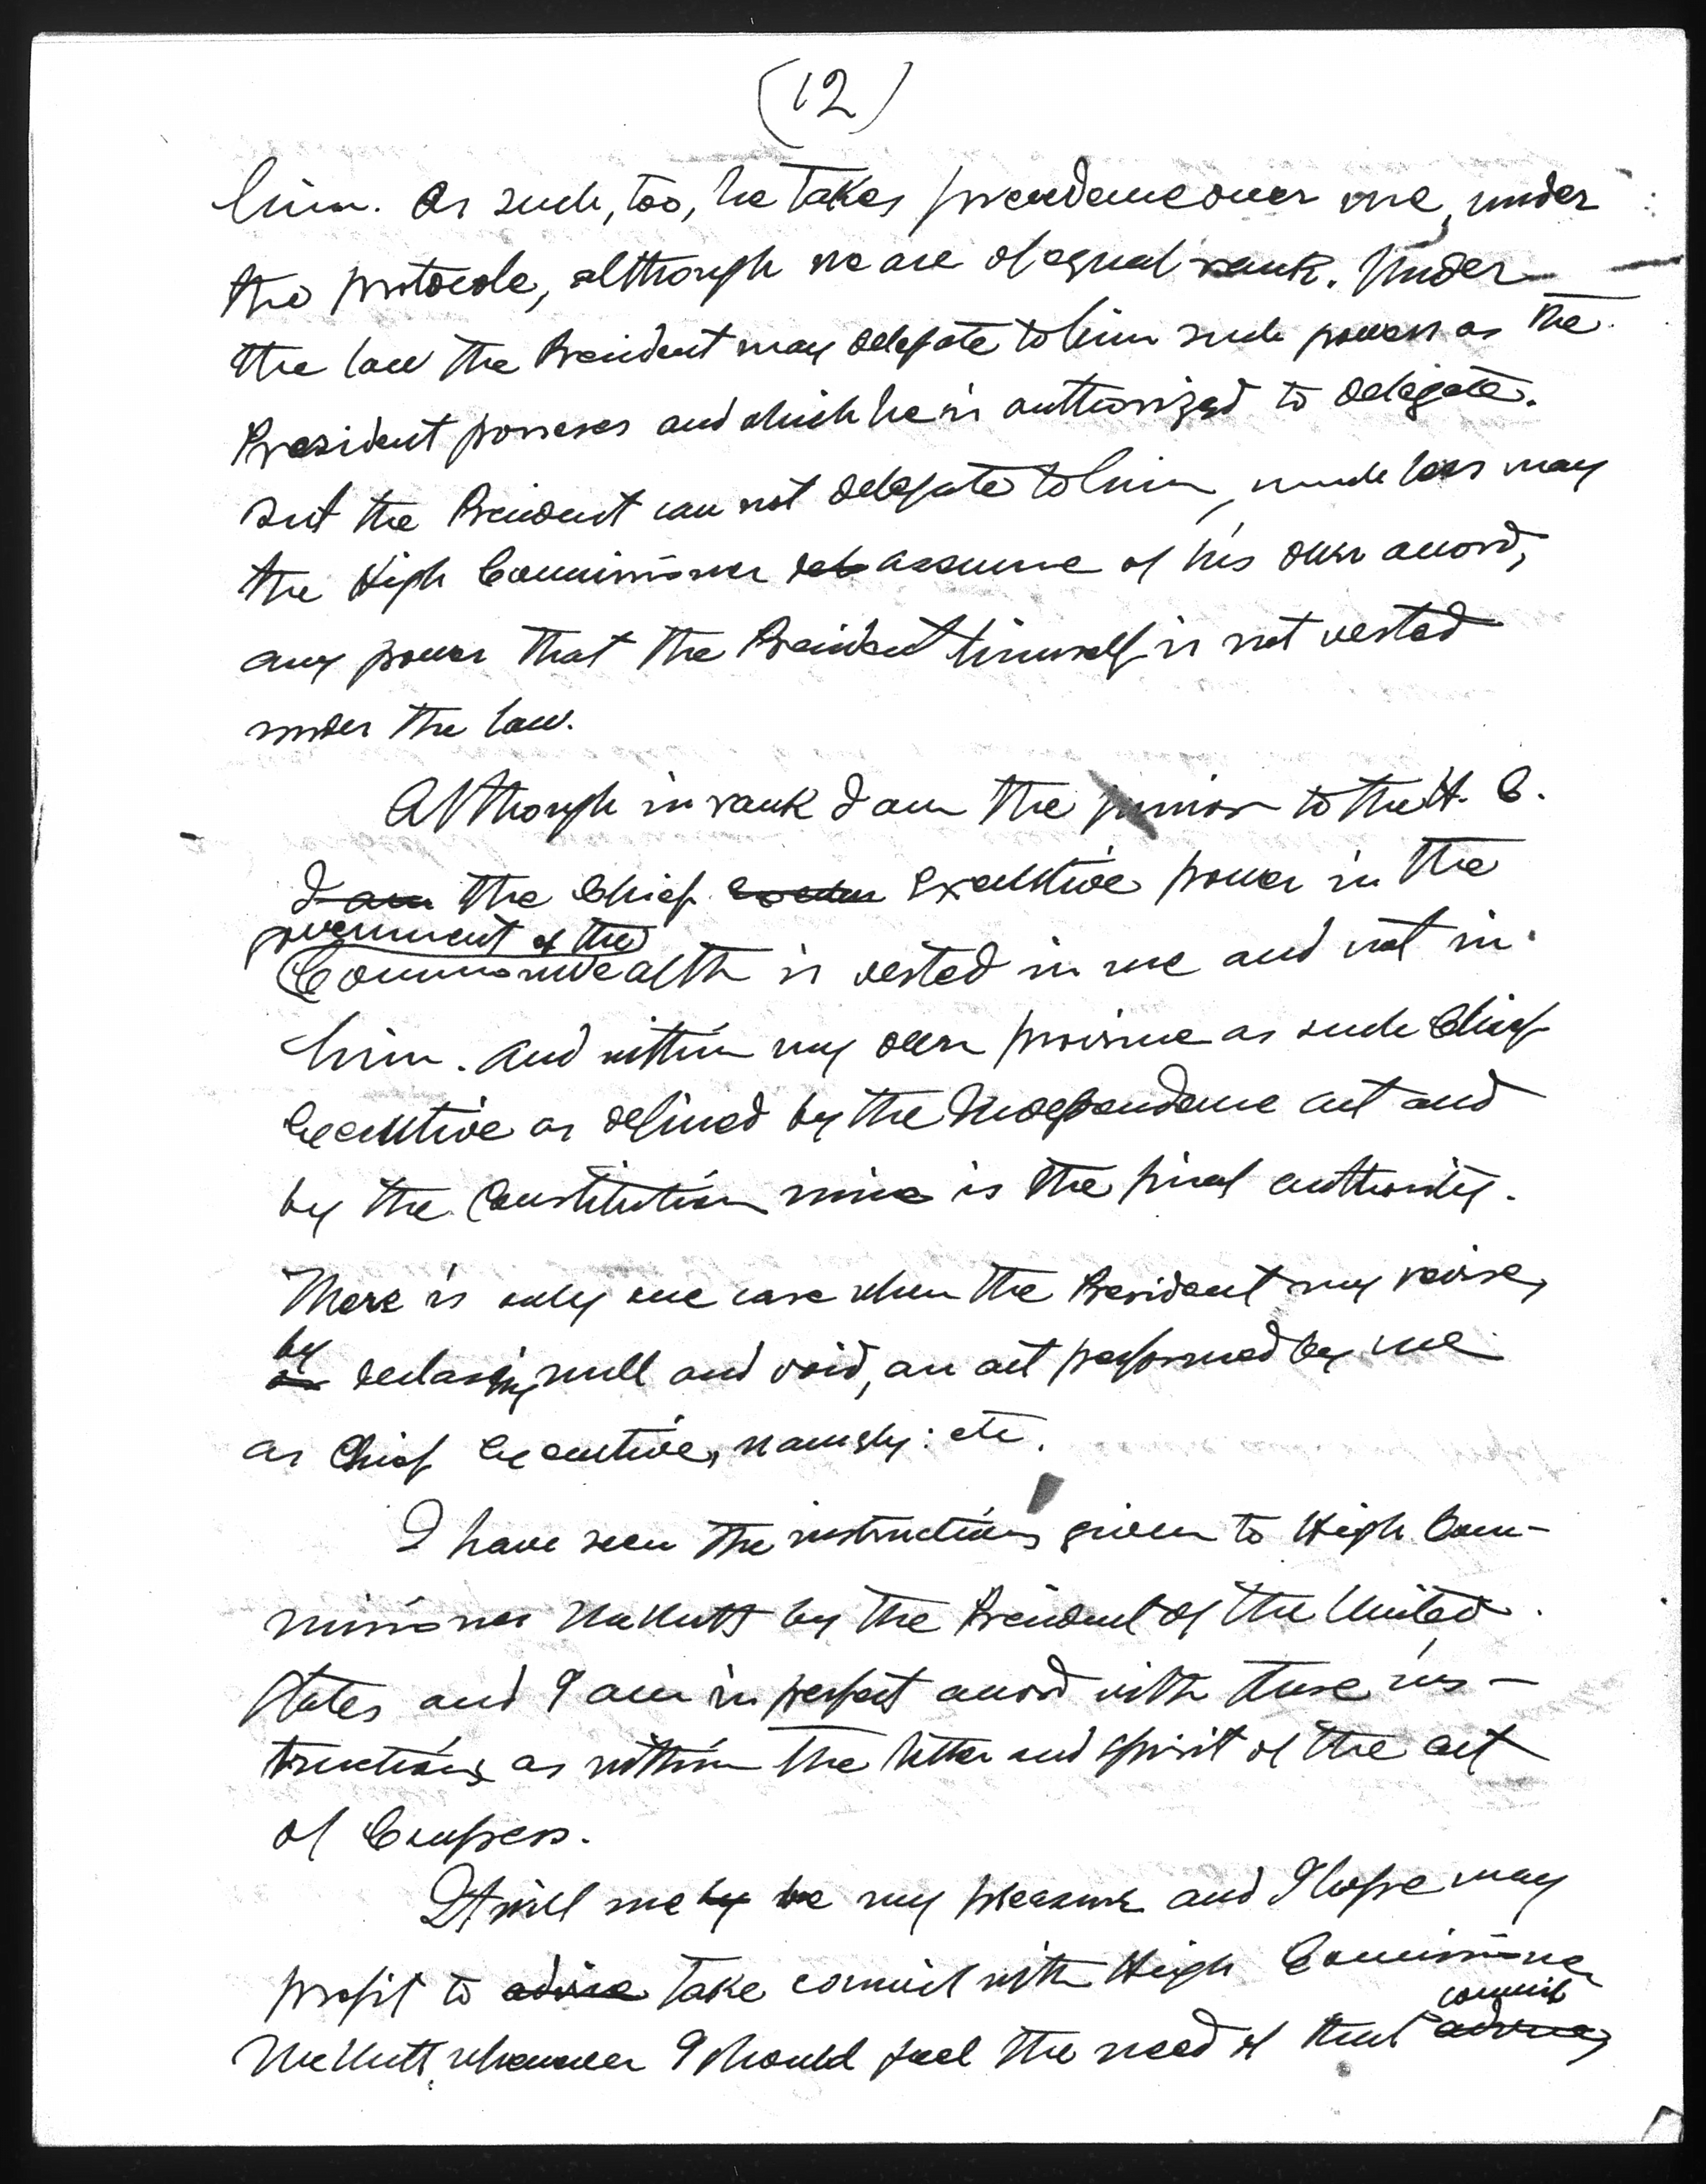 (12)
him. As such, too, he takes precedence over me, under
the protocole, although we are of equal rank. Under
the law the President may delegate to him such powers as the
President posseses and which he is authorized to delegate.
But the President can not delegate to him, much less may
the High Commissioner del assume of his own accord,
any power that the President himself is not vested
under the law.
Although in rank I am the junior to the H. C.
I am the Chief Executive power in the
government of the
Commonwealth is vested in me and not in
him. And within my own province as such Chief
Executive as defined by the Independence act and
by the Constitution mine is the final authority.
There is only one case when the President may revise,
by
or declaring null and void, an act performed by me
as Chief Executive, namely: etc.
I have seen the instructions given to High Com-
missioner McNutt by the President of the United
States and I am in perfect accord with those ins-
tructions as within the letter and spirit of the act
of Congress.
It will be my pleasure and I hope may
profit to advise take council with High Commissioner
council
McNutt, whenever I should feel the need of that advice,